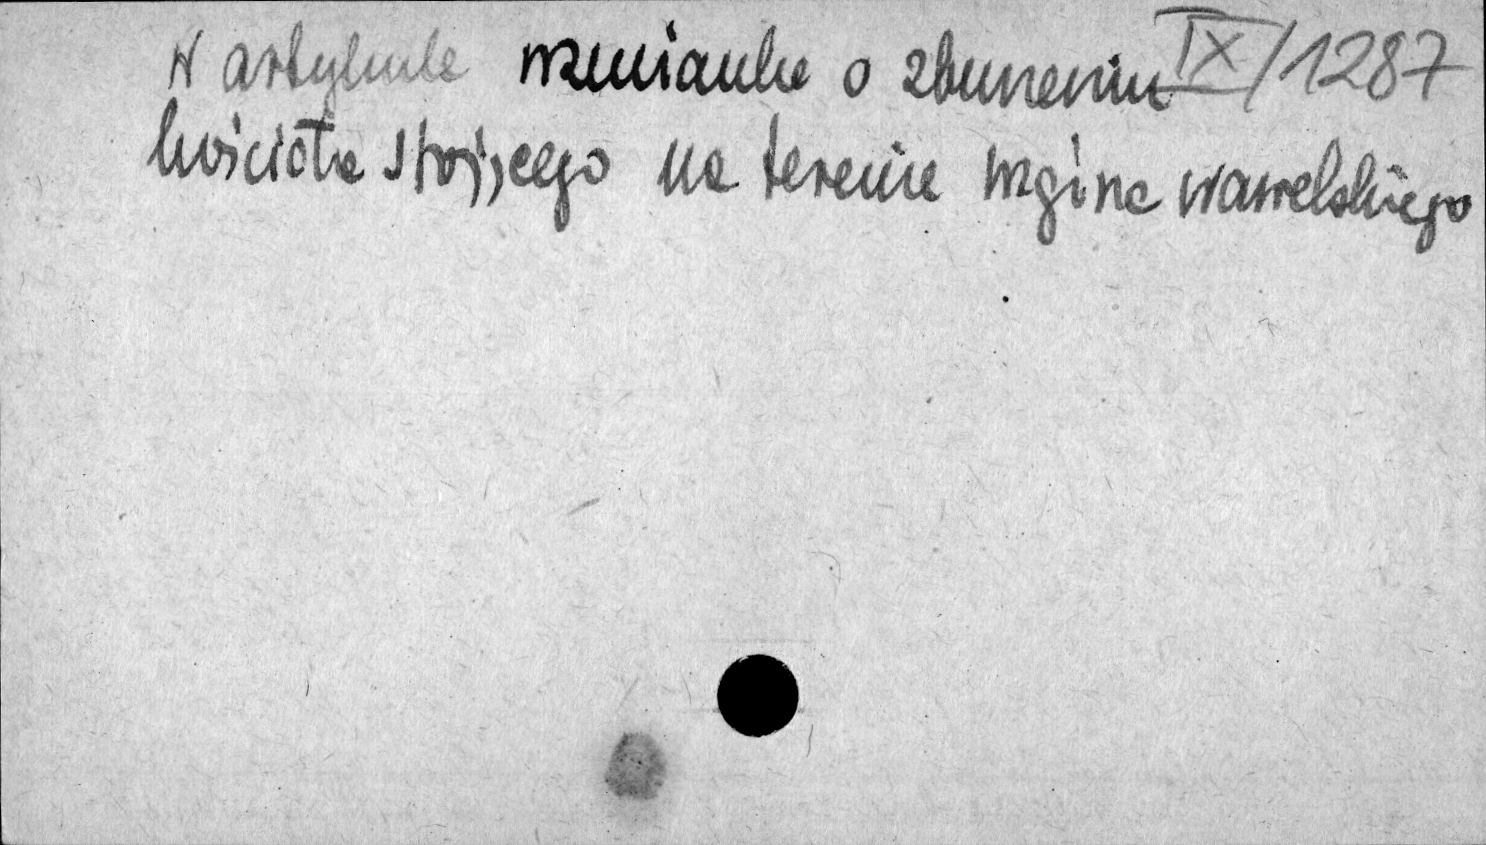 W artykule wzmianka o zburzeniu IX/1287
kościoła stojącego na terenie wzgórza wawelskiego